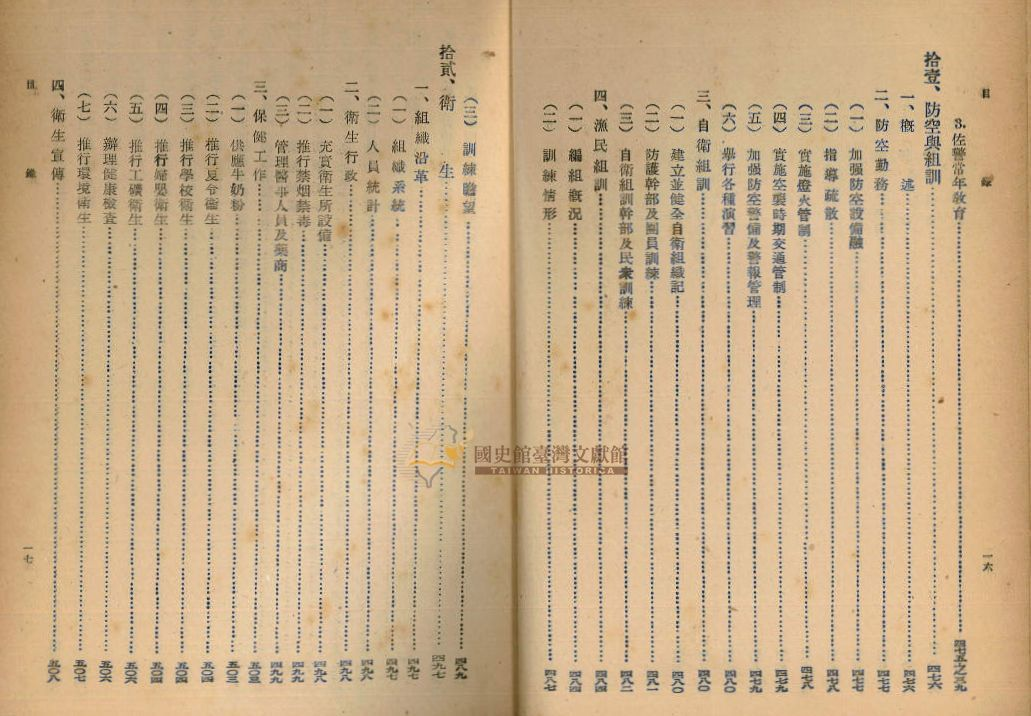 目錄
3. 佐警常年教育……四七五之三九
拾壹、防空與組訓……四七六
一、概述……四七六
二、防空勤務……四七七
（一）加强防空設備……四七七
（二）指導疏散……四七七
（三）實施燈火管制……四七八
（四）實施空襲時期交通管制……四七九
（五）加强防空警備及警報管理……四七九
（六）舉行各種演習……四八〇
三、自衛組訓……四八〇
（一）建立並健全自衛組織……四八〇
（二）防護幹部及團員訓練……四八一
（三）自衛組訓幹部及民衆訓練……四八二
四、漁民組訓……四八四
（一）編組概況……四八四
（二）訓練情形……四八七
一六
（三）訓練瞻望……四八九
拾貳、衛生……四九七
一、組織沿革……四九七
（一）組織系統……四九七
（二）人員統計……四九八
二、衛生行政……四九八
（一）充實衛生所設備……四九八
（二）推行禁烟禁毒……四九九
（三）管理醫事人員及藥商……四九九
三、保健工作……五〇三
（一）供應牛奶粉……五〇三
（二）推行夏令衛生……五〇四
（三）推行學校衛生……五〇四
（四）推行婦嬰衛生……五〇四
（五）推行工礦衛生……五〇六
（六）辦理健康檢查……五〇六
（七）推行環境衛生……五〇七
四、衛生宣傳……五〇八
目錄
一七
國史館臺灣文獻館
TAIWAN HISTORICA